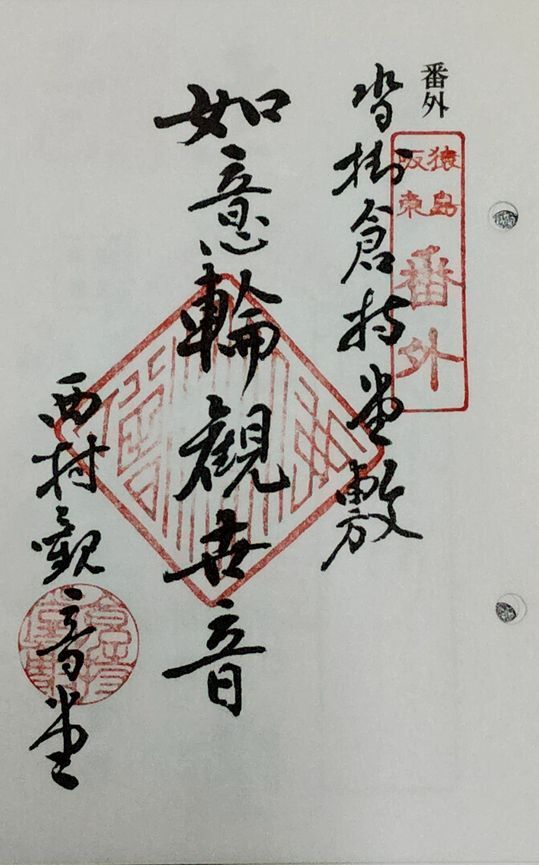 番外
猿島
阪東
番外
沓掛倉持堂敷
如意輪觀世音
西村観音堂